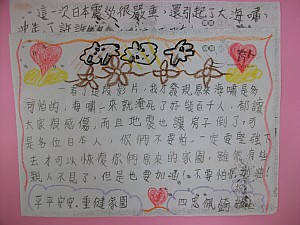 這次日本震的很嚴重,還引起了大海嘯,
沖走了許許
祈福卡
一看了這影片,我才發現原來海嘯是多
可怕的,海嘯一來就淹死了好幾百千人,都讓
大家很感傷,而且地震也讓房子倒了,可
是多位日本人,你們不要怕,一定要堅強下
去才可以恢復你們原來的家園,雖然有些
親人不見了,但是也要加油!不要怕
平平安安,重健家園
四忠